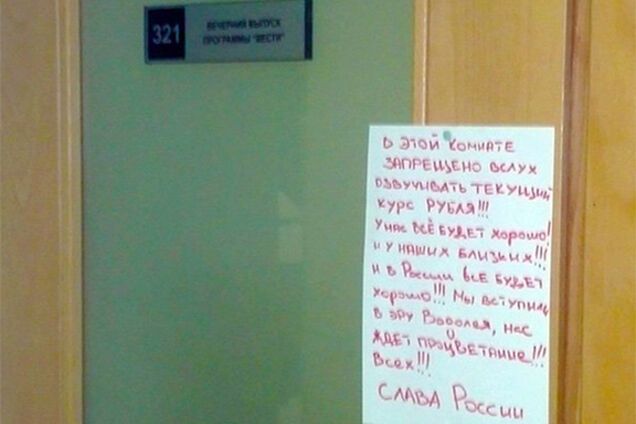 321
ВЕЧЕРНИЙ ВЫПУСК
ПРОГРАММЫ "ВЕСТИ"
В ЭТОЙ КОМНАТЕ
ЗАПРЕЩЕНО ВСЛУХ
ОЗВУЧИВАТЬ ТЕКУЩИЙ
КУРС РУБЛЯ!!!
У НАС ВСЁ БУДЕТ хорошо!
И У НАШИХ БЛИЗКИХ!!!
И В России ВСЁ БУДЕТ
хорошо!!! Мы вступили
В ЭРУ Водолея, НАС
И
ЖДЕТ ПРОЦВЕТАНИЕ!!!
Всех!!!
СЛАВА России